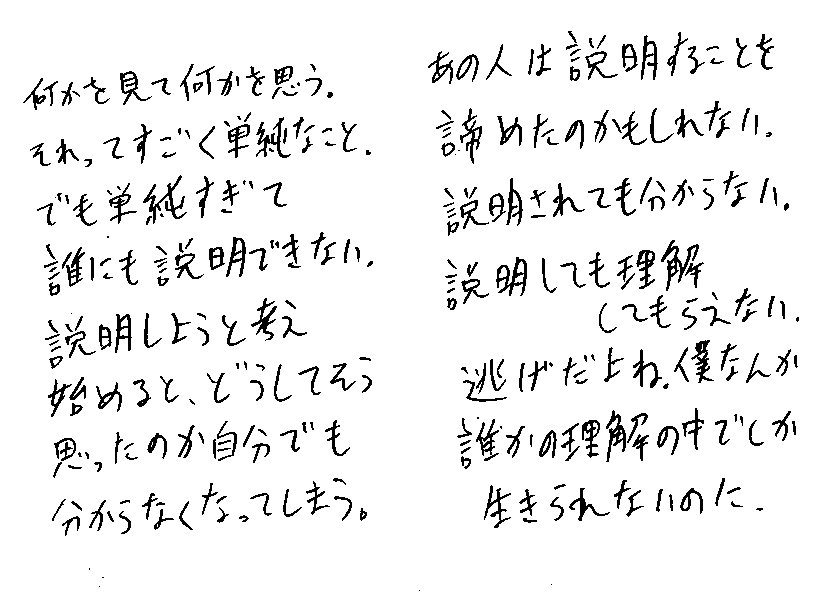 何かを見て何かを思う。
それってすごく単純なこと。
でも単純すぎて
誰にも説明できない。
説明しようと考え
始めると、どうしてそう
思ったのか自分でも
分からなくなってしまう。
あの人は説明することを
諦めたのかもしれない。
説明されても分からない。
説明しても理解
してもらえない。
逃げだよね。僕なんか
誰かの理解の中でしか
生きられないのに。